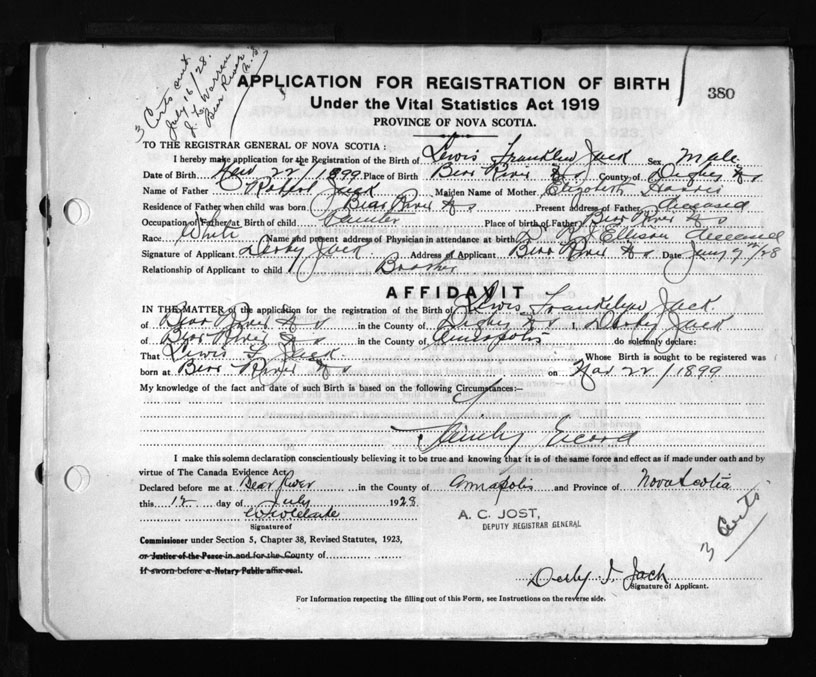 3 Certs sent
July 16/28.
J L Warren
Bear River
N. S.
APPLICATION FOR REGISTRATION OF BIRTH
Under the Vital Statistics Act 1919
PROVINCE OF NOVA SCOTIA.
380
TO THE REGISTRAR GENERAL OF NOVA SCOTIA:
I hereby make application for the Registration of the Birth of Lewis Franklin Jack Sex Male
Date of Birth 22/1899 Place of Birth Bear River N S County of Digby N S
Name of Father Robert Jack Maiden Name of Mother Elizabeth Harris
Residence of Father when child was born Bear River N S Present address of Father deceased
Occupation of Father at Birth of child Place of birth of Father Bear River N S
Race White Name and present address of Physician in attendance at birth Dr R J Ellison deceased
Signature of Applicant Derby Jack Address of Applicant Bear River N S Date 9th/28
Relationship of Applicant to child Brother
AFFIDAVIT
IN THE MATTER of the application for the registration of the Birth of Lewis Franklyn Jack
of Bear River N S in the County of Digby N S I, Derby Jack
of Bear River N S in the County of Annapolis do solemnly declare:
That Lewis F. Jack. Whose Birth is sought to be registered was
born at Bear River N S on 22/1899
My knowledge of the fact and date of such Birth is based on the following Circumstances:—
Family Record
I make this solemn declaration conscientiously believing it to be true and knowing that it is of the same force and effect as if made under oath and by
virtue of The Canada Evidence Act.
Declared before me at Bear River in the County of Annapolis and Province of Nova Scotia
this 12 day of July 1928
A. C. JOST,
DEPUTY REGISTRAR GENERAL
Signature of
Commissioner under Section 5, Chapter 38, Revised Statutes, 1923,
or Justice of the Peace in and for the County of
If sworn before a Notary Public affix seal.
3 Certs
Derby F. Jack
Signature of Applicant.
For Information respecting the filling out of this Form, see Instructions on the reverse side.